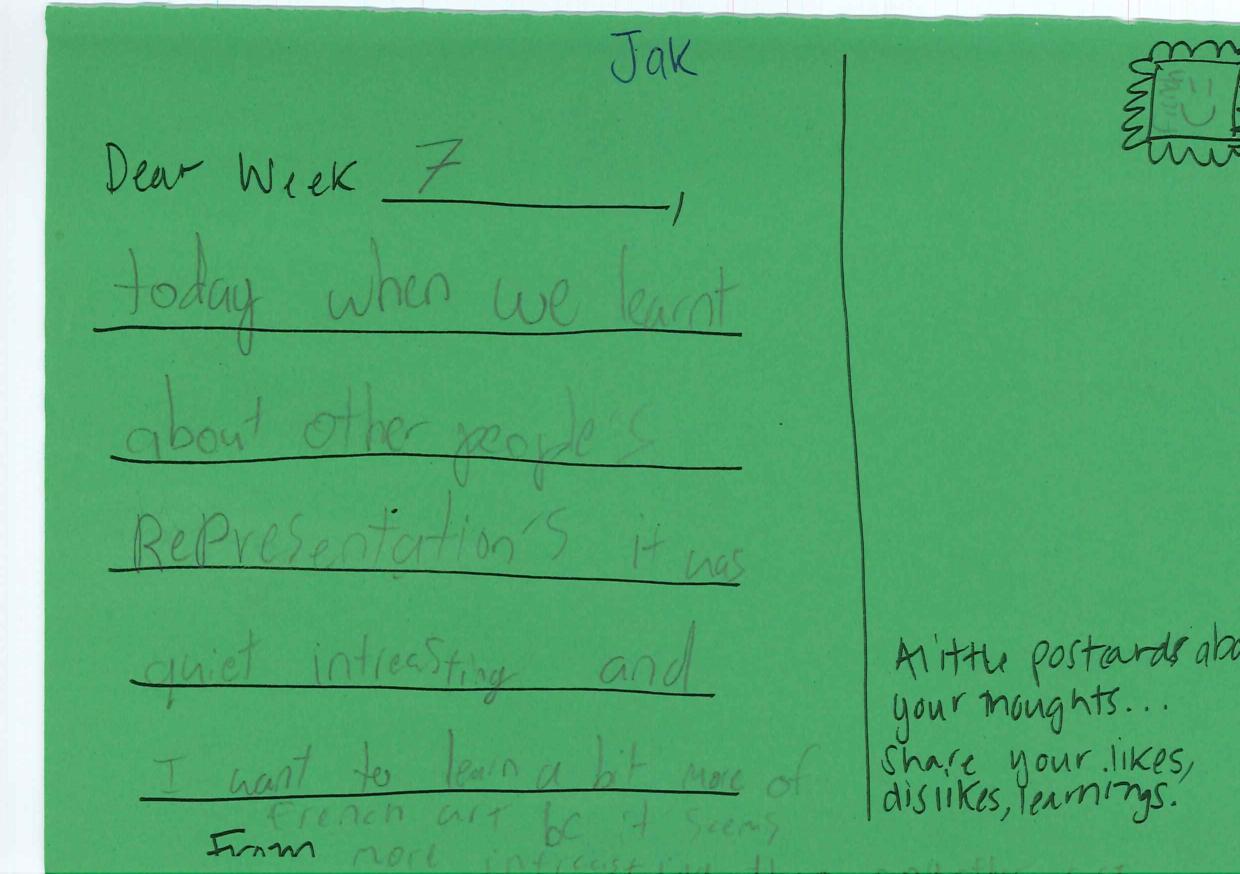 Jak
Dear Week 7,
today when we learnt
about other people's
Representation's it was
quiet intreasting and
I want to learn a bit more of
french art bc it seems
From
more intreasting than
A little postcards abo
your thoughts...
Share your likes,
dislikes, learnings.